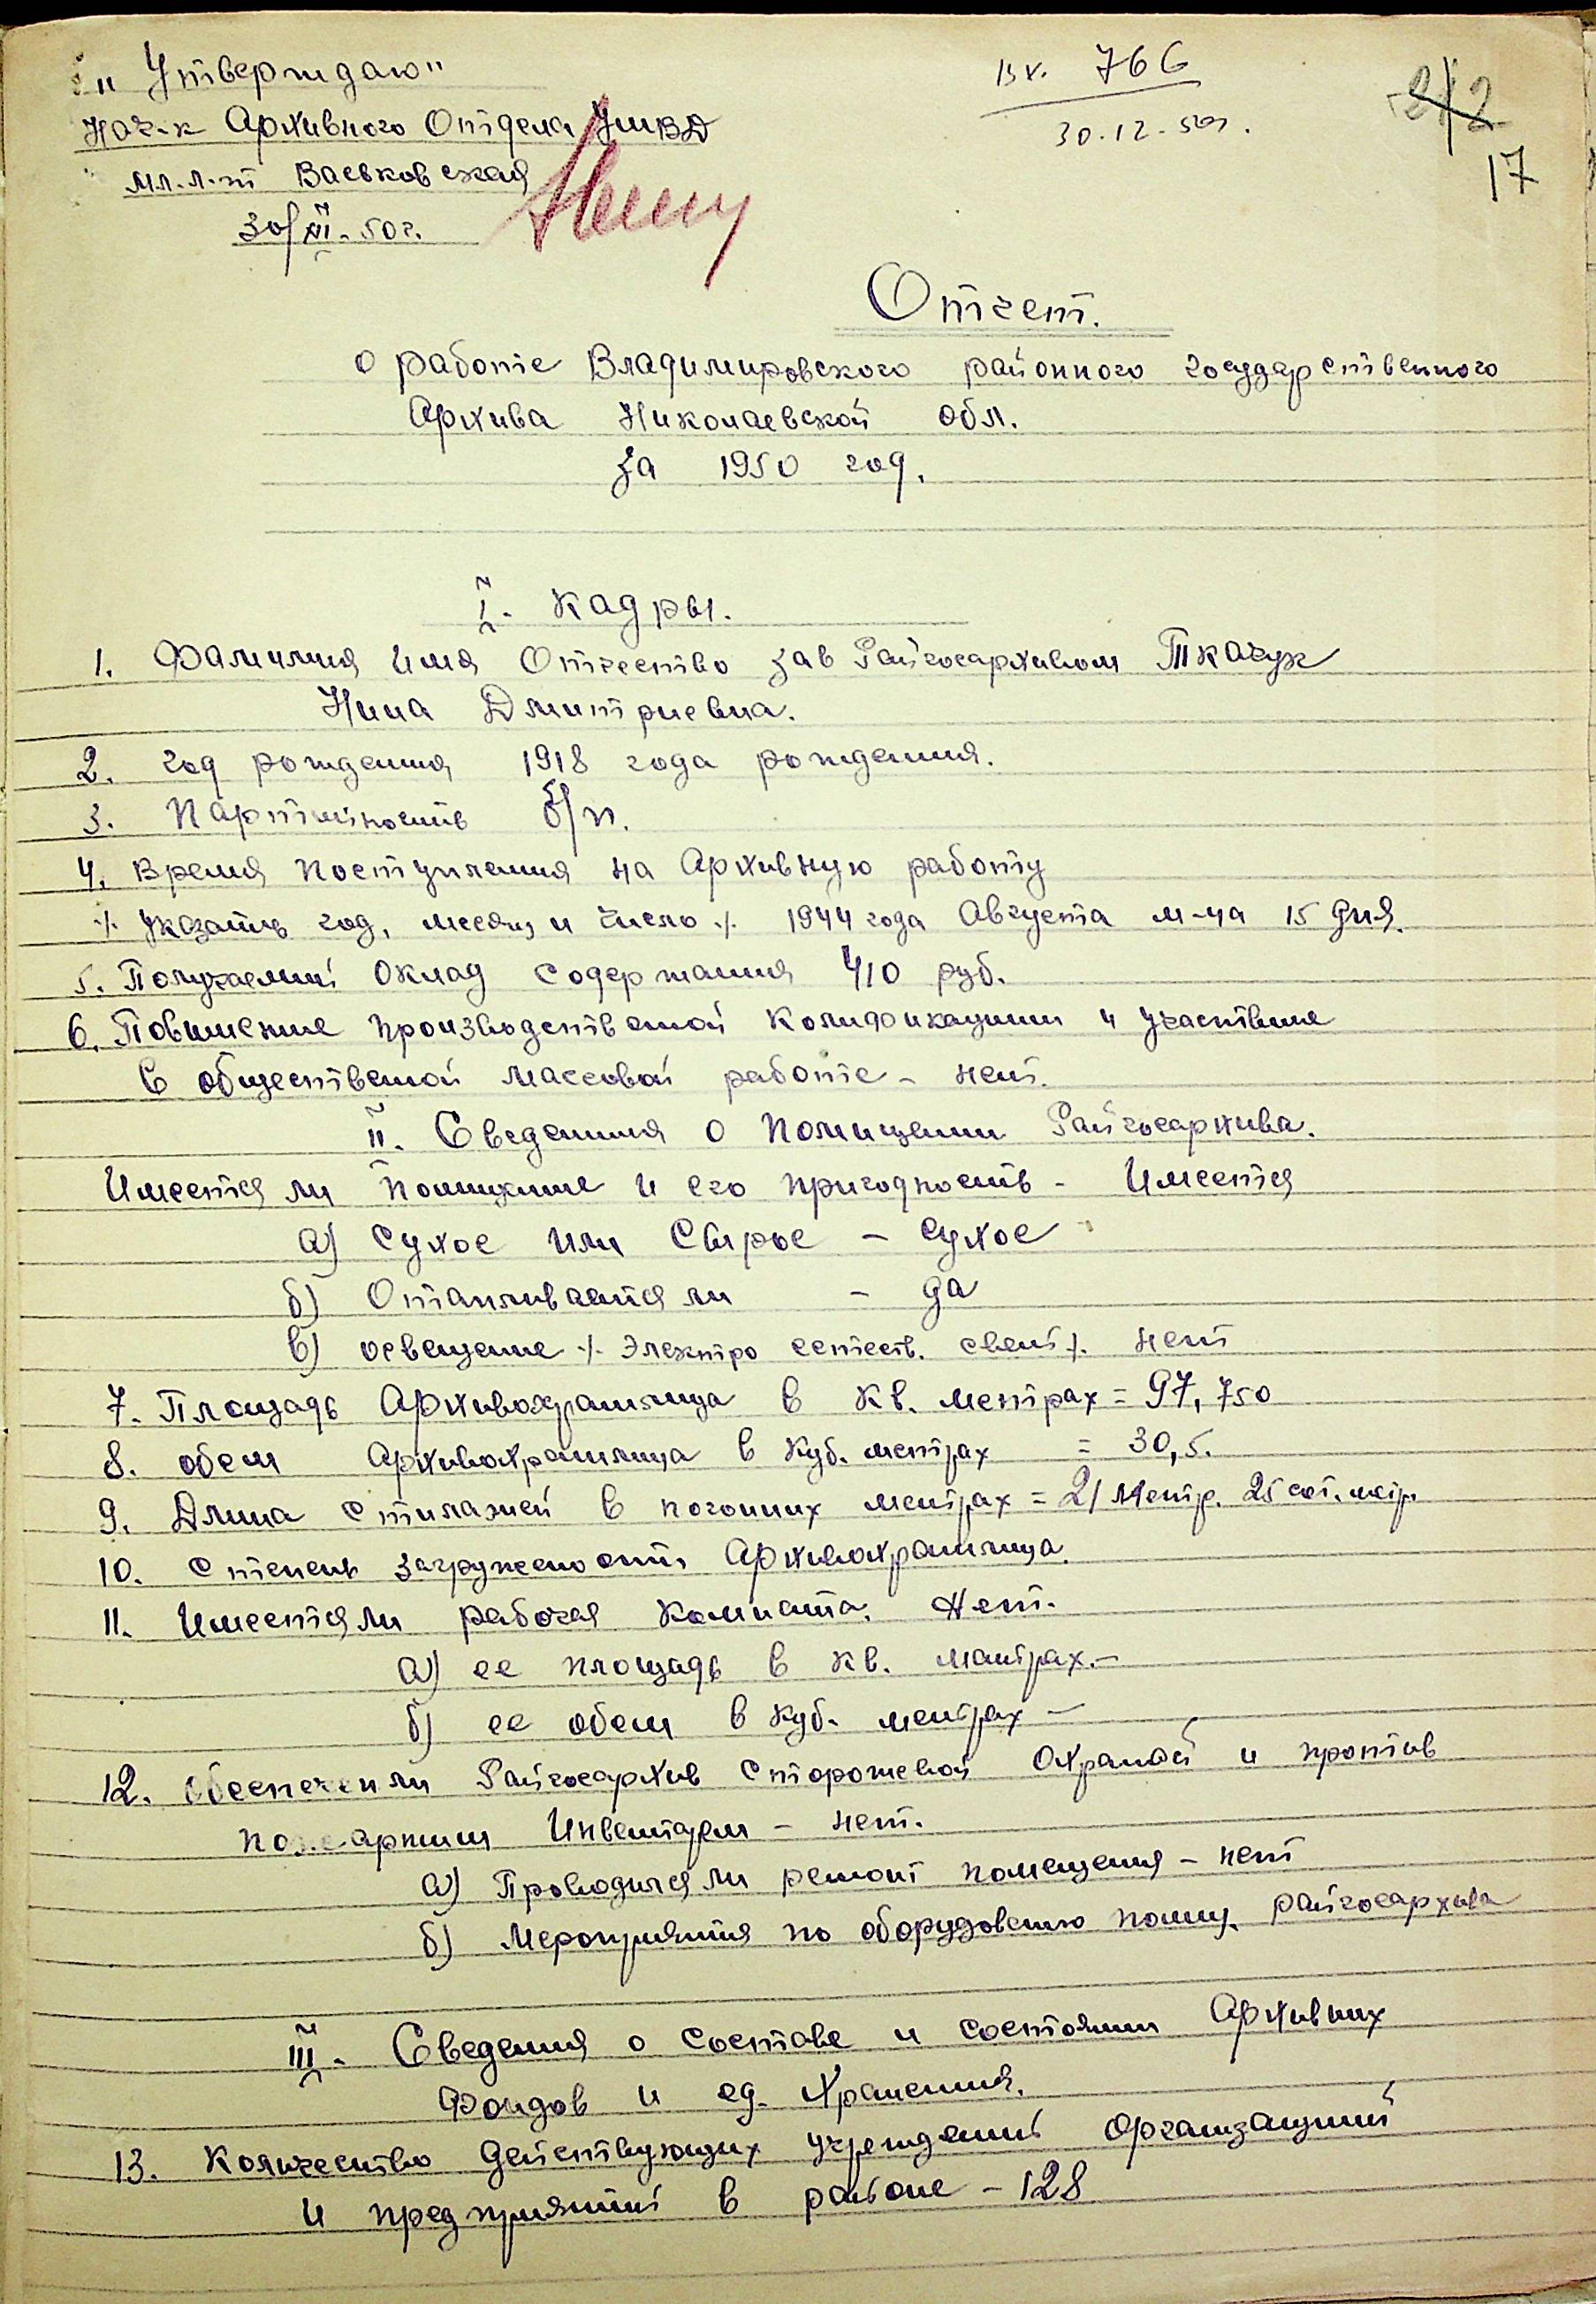 „Утверждаю"
Нач-к Архивного Отдела УМВД
мл. л-т Васьковская
30/XII-50г.
Вх. 766
30.12-50г.
17
Отчет.
о работе Владимировского районного государственного
Архива Николаевской обл.
за 1950 год.
I. Кадры.
1. Фамилия имя Отчество зав Райгосархивом Ткачук
Нина Дмитриевна.
2. год рождения 1918 года рождения.
3. Партийность б/п.
4. Время поступления на Архивную работу
./. указать год, месяц и число ./. 1944 года Августа м-ца 15 дня.
5. Получаемий Оклад содержания 410 руб.
6. Повишение производственой Колификации и участвие
в общественой массовой работе - нет.
II. Сведенния о помищении Райгосархива.
Имеется ли помищение и его пригодность - Имеется
а) сухое или Сырое - сухое
б) Отапливается ли - да
в) освещение ./. Электро естеств. свет ./. нет
7. Площадь Архивохранилища в кв. метрах = 97,750
8. обем Архивохранилища в куб. метрах = 30,5.
9. Длина стилажей в погонних метрах = 21 метр. 25 сот. метр.
10. степень загружености Архивохранилища.
11. Имеется ли рабочая комната. Нет.
а) ее площадь в кв. матрах. -
б) ее обем в куб. метрах -
12. Обеспечен ли Райгосархив сторожевой Охраной и против
пожарним Инвентарем - нет.
а) Проводился ли ремонт помещения - нет
б) Мероприятия по оборудованию помещ. райгосархива
III. Сведения о составе и состоянии Архивних
фондов и ед. хранения.
13. Количество действующих учреждений организаций
и предприятий в районе - 128